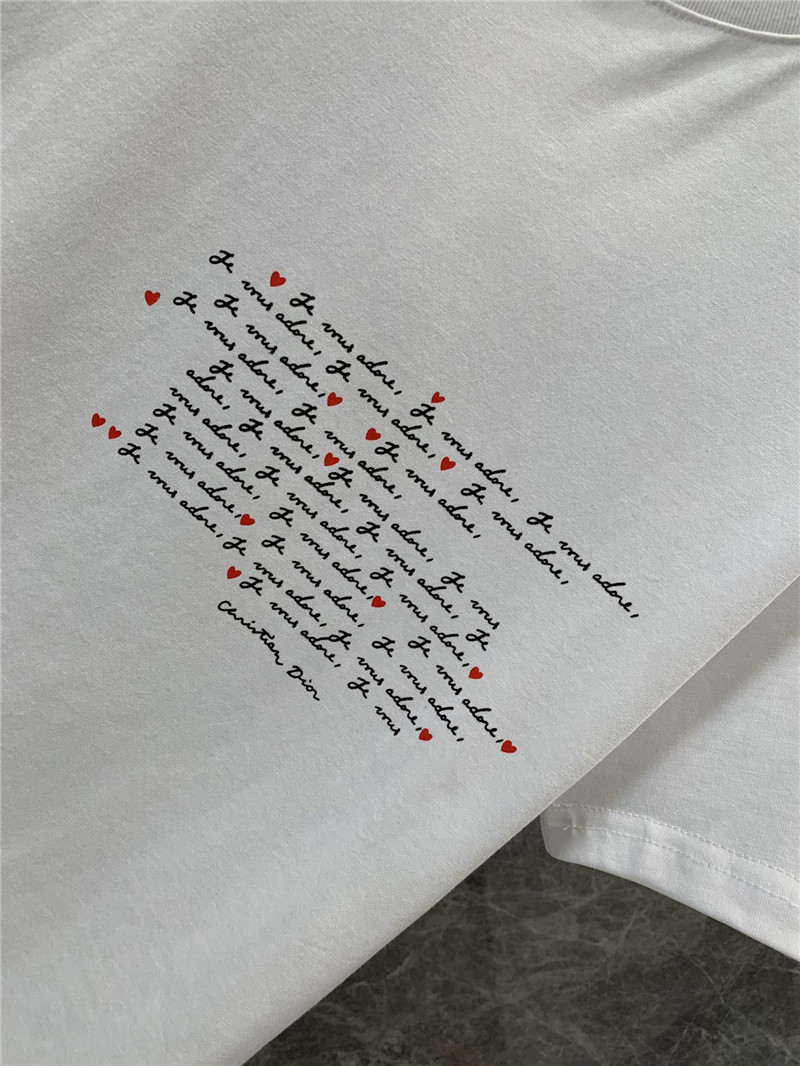 Je vous adore, Je vous adore, Je vous adore,
Je vous adore, Je vous adore, Je vous adore,
Je vous adore, Je vous adore,
Je vous adore, Je vous adore,
Je vous adore, Je vous adore, Je vous
adore, Je vous adore, Je vous adore, Je
vous adore, Je vous adore, Je vous adore,
Je vous adore, Je vous adore, Je vous adore,
Je vous adore, Je vous adore, Je vous adore,
Je vous adore, Je vous adore, Je vous adore,
Je vous adore, Je vous
Christian Dior